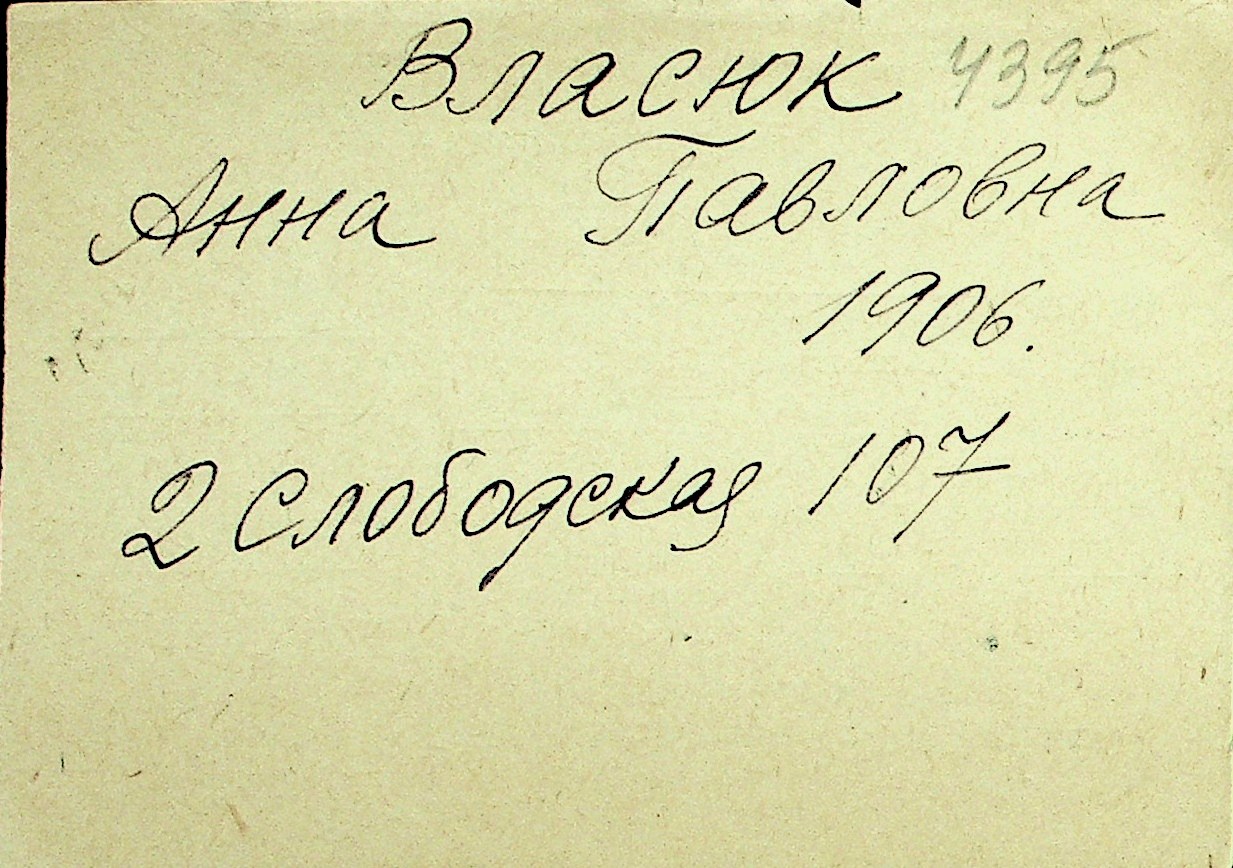 Власюк 4395
Анна Павловна
1906.
2 Слободская 107